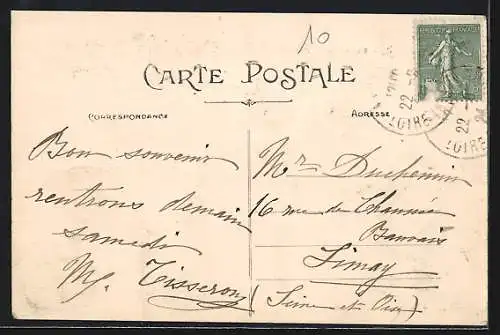 10
RÉPUBLIQUE FRANÇAISE
CARTE POSTALE
CORRESPONDANCE
ADRESSE
Bon souvenir
rentrons demain
samedi
Tisseron
Mr Duchemin
16 rue de
Beauvais
Limay
(Seine et Oise)
22
LOIRE
22
LOIRE